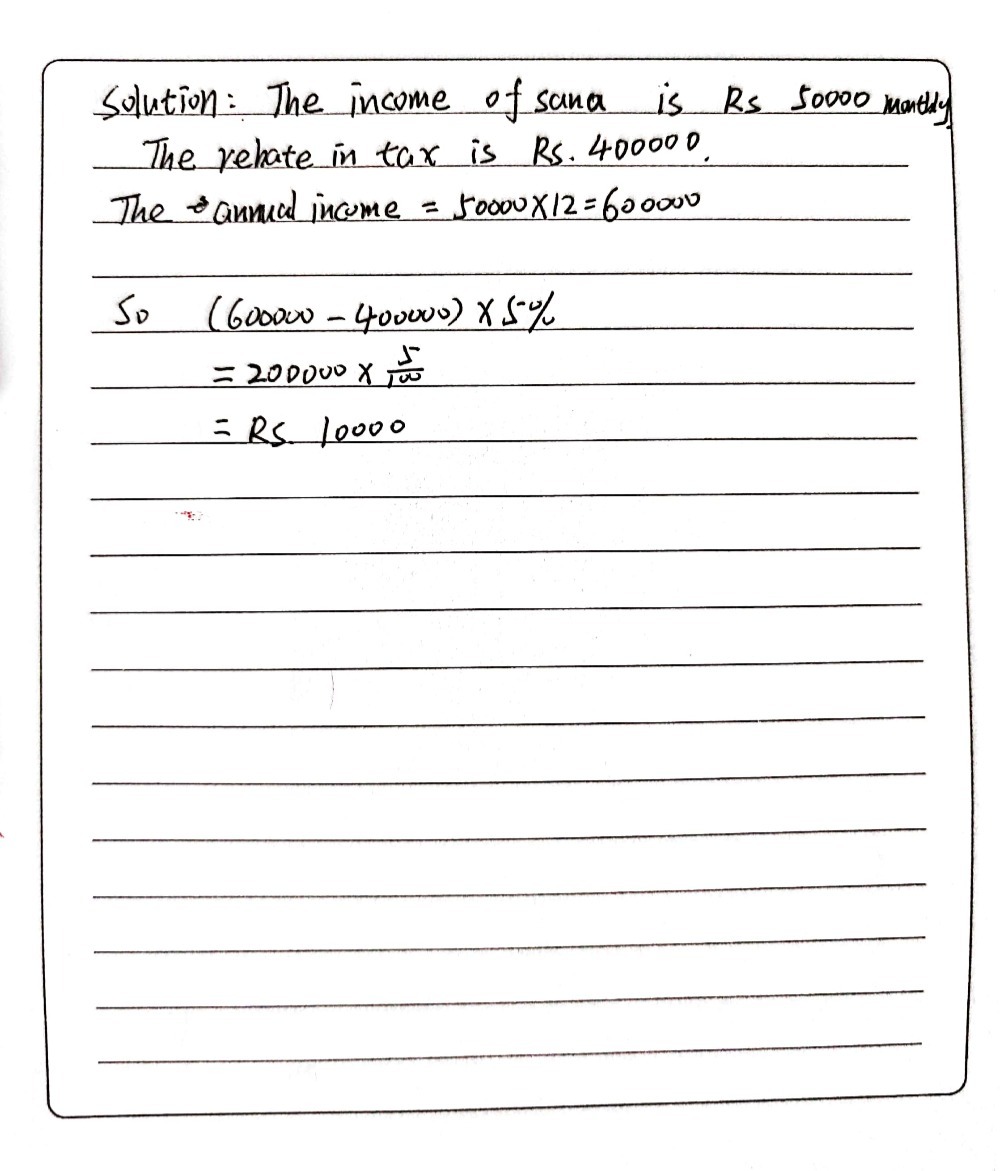 Solution: The income of sana is Rs 50000 monthly
The rebate in tax is Rs. 400000.
The annual income = 50000X12=600000
So (600000-400000) X 5%
= 200000 X 5/100
= Rs. 10000